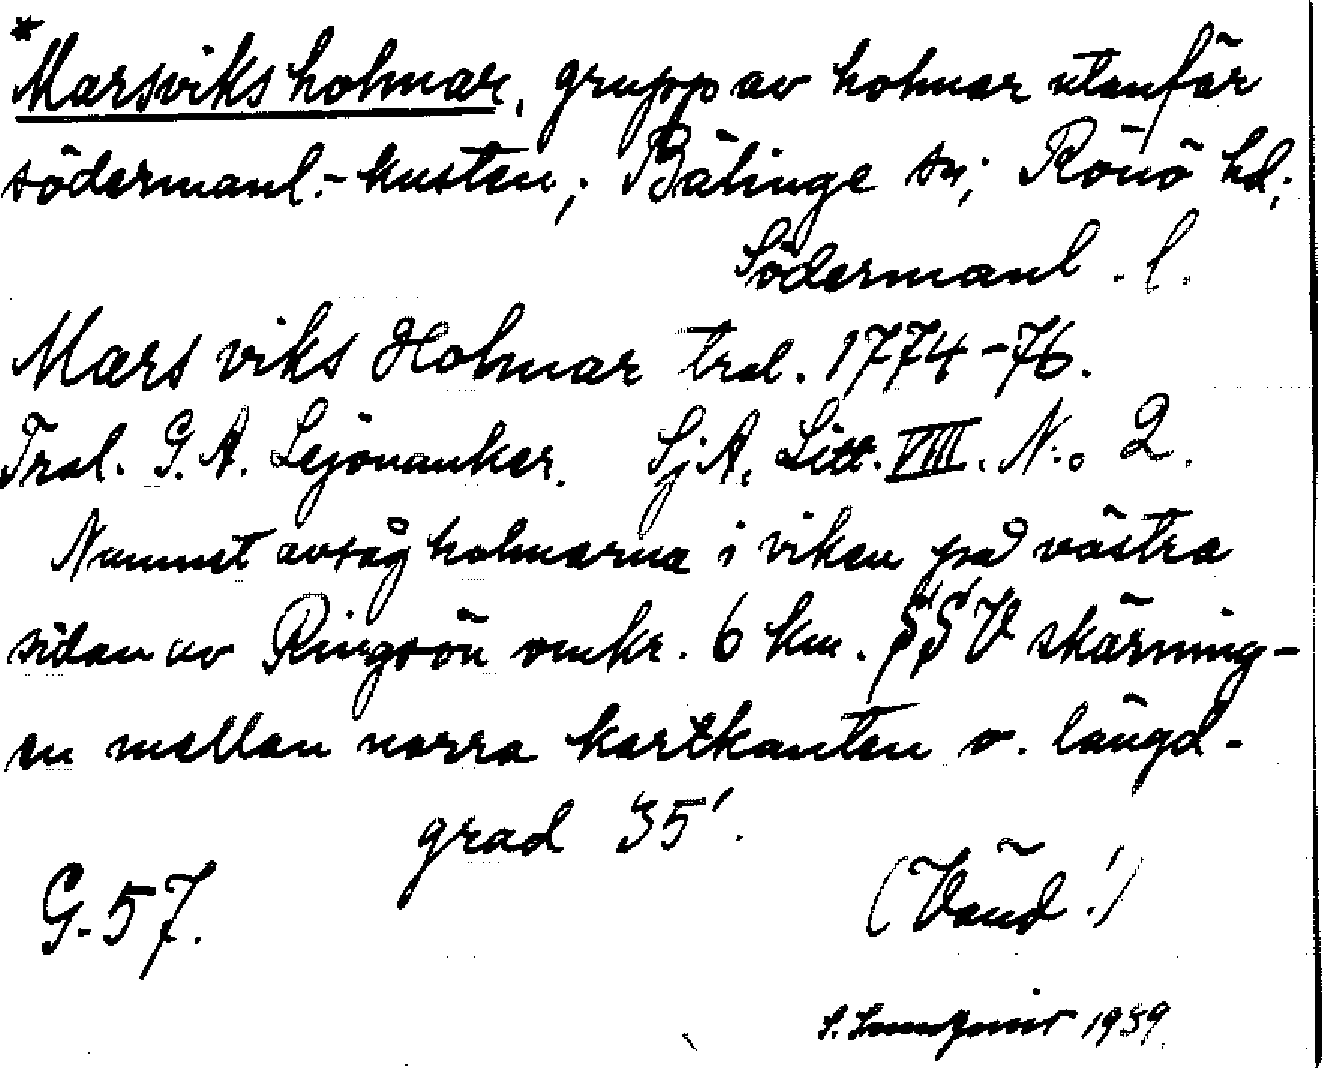 *Marsviksholmar, grupp av holmar utanför
södermanl.-kusten; Bälinge sn; Rönö hd;
Södermanl. l.
Mars viks Holmar tral. 1774-76.
Tral. G. A. Lejonanker. SjA. Litt. VIIII. N:o 2.
Namnet avsåg holmarna i viken på västra
sidan av Ringsön omkr. 6 km. SSV skärning-
en mellan norra kartkanten o. längd-
grad 35'.
G. 57. (Vänd!)
1939